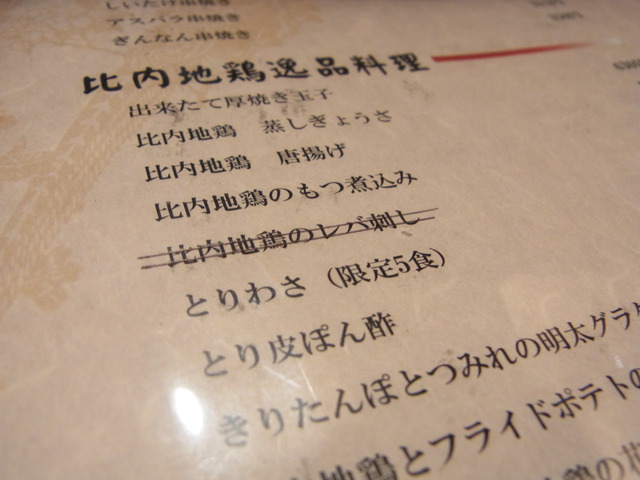 しいたけ串焼き
アスパラ串焼き
ぎんなん串焼き
比内地鶏逸品料理
出来たて厚焼き玉子
比内地鶏 蒸しぎょうざ
比内地鶏 唐揚げ
比内地鶏のもつ煮込み
比内地鶏のレバ刺し
とりわさ（限定5食）
とり皮ぽん酢
きりたんぽとつみれの明太グラタ
地鶏とフライドポテトの